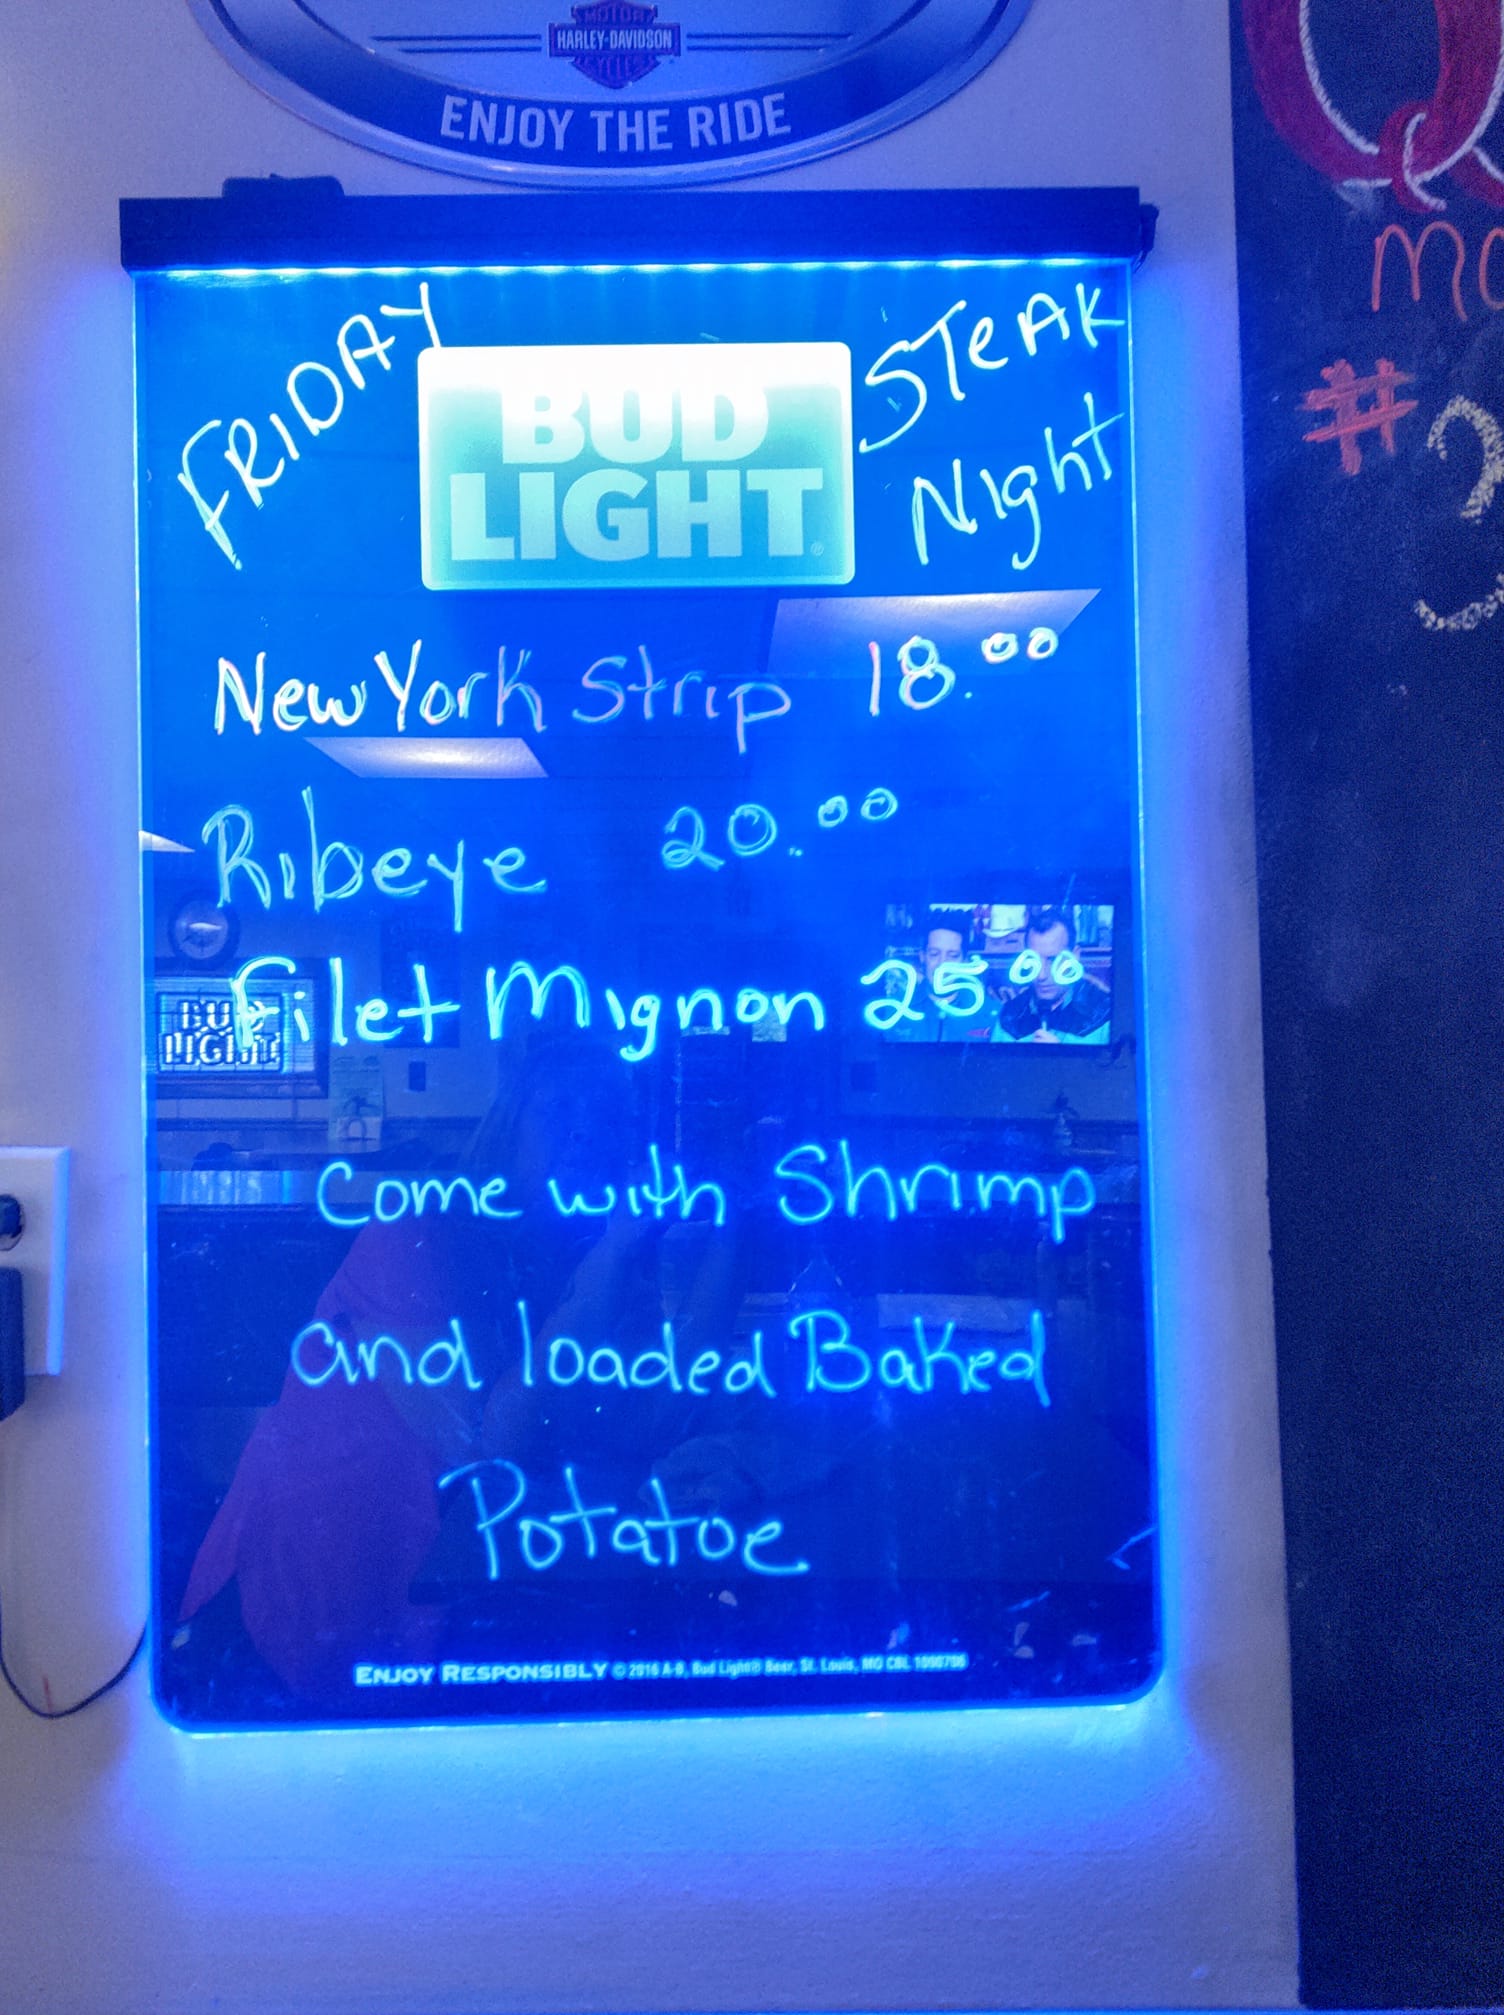 MOTOR
HARLEY-DAVIDSON
CYCLES
ENJOY THE RIDE
FRIDAY
BUD
LIGHT®
STeAK
Night
New York Strip 18.00
Ribeye 20.00
Filet Mignon 25.00
BUD
LIGHT
Come with Shrimp
and loaded Baked
Potatoe
ENJOY RESPONSIBLY © 2016 A-B, Bud Light® Beer, St. Louis, MO CBL 1090796
#